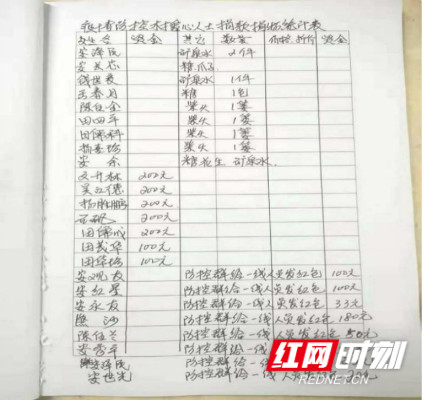 疫情防控本村爱心人士捐款捐物统计表
姓名 资金 其它 数量 价格、折价 资金
安泽民 矿泉水 2件
安芙蕊 糖、瓜子
钱世爱 矿泉水 1件
王春月 糖 1包
陈任金 柴火 1篓
田四年 柴火 1篓
田儒科 柴火 1篓
柴火 1篓
安余 糖花生 矿泉水
文升林 200元
吴江德 200元
杨胜鹏 200元
200元
田儒成 200元
田茂华 100元
田华 100元
安观友 防控群给一线人员发红包 100元
安红星 防控群给一线人员发红包 100元
安永友 防控群给一线人员发红包 33元
沙 防控群给一线人员发红包 180元
陈任兰 防控群给一线人员发红包 50元
安雪平 防控群给一线
安泽民 防控群给一线
安世光 防控群给一线人员发红包
红网时刻
REDNET.CN